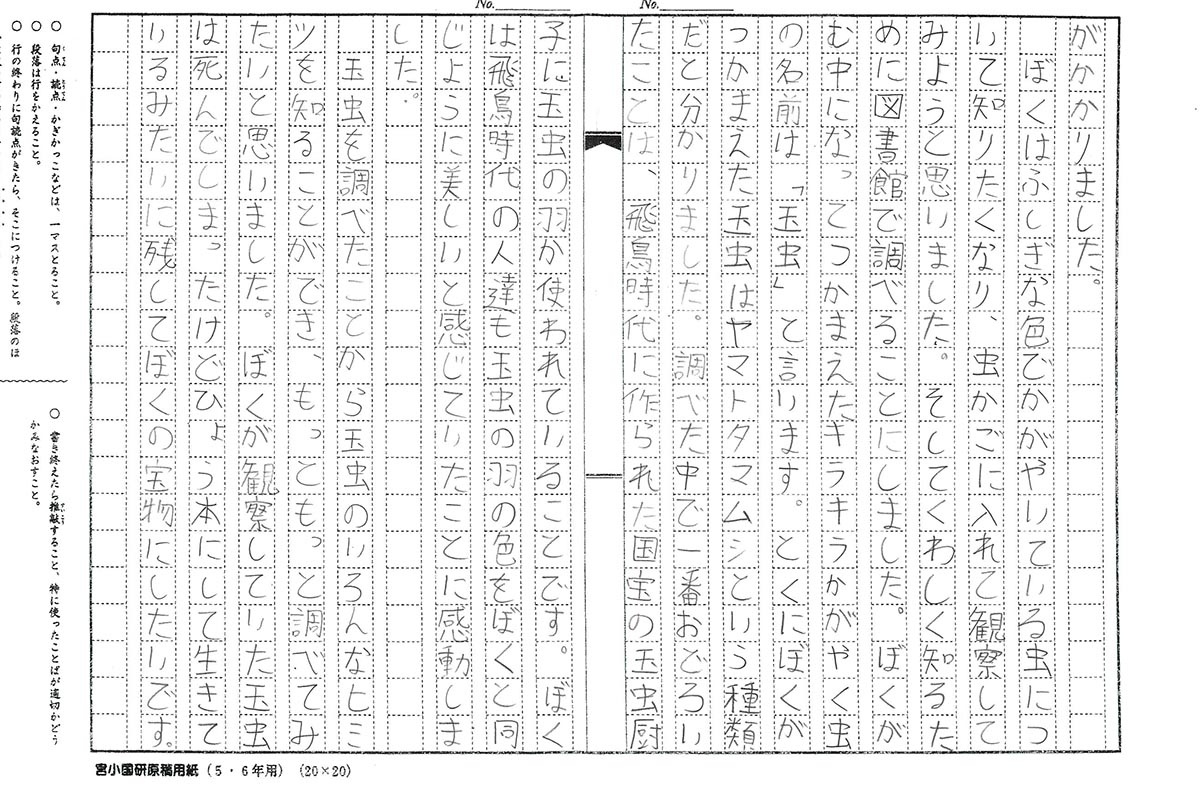 No.
No.
がかかりました。
ぼくはふしぎな色でかがやいている虫につ
いて知りたくなり、虫かごに入れて観察して
みようと思いました。そしてくわしく知るた
めに図書館で調べることにしました。ぼくが
む中になってつかまえたキラキラかがやく虫
の名前は「玉虫」と言います。とくにぼくが
つかまえた玉虫はヤマトタマムシという種類
だと分かりました。調べた中で一番おどろい
たことは、飛鳥時代に作られた国宝の玉虫厨
子に玉虫の羽が使われていることです。ぼく
は飛鳥時代の人達も玉虫の羽の色をぼくと同
じように美しいと感じていたことに感動しま
した。
玉虫を調べたことから玉虫のいろんなヒミ
ツを知ることができ、もっともっと調べてみ
たいと思いました。ぼくが観察していた玉虫
は死んでしまったけどひょう本にして生きて
いるみたいに残してぼくの宝物にしたいです。
○ 句点・読点・かぎかっこなどは、一マスとること。
○ 段落は行をかえること。
○ 行の終わりに句読点がきたら、そこにつけること。段落のほ
○ 書き終えたら推敲すること、特に使ったことばが適切かどう
かみなおすこと。
宮小国研原稿用紙(5・6年用) (20×20)